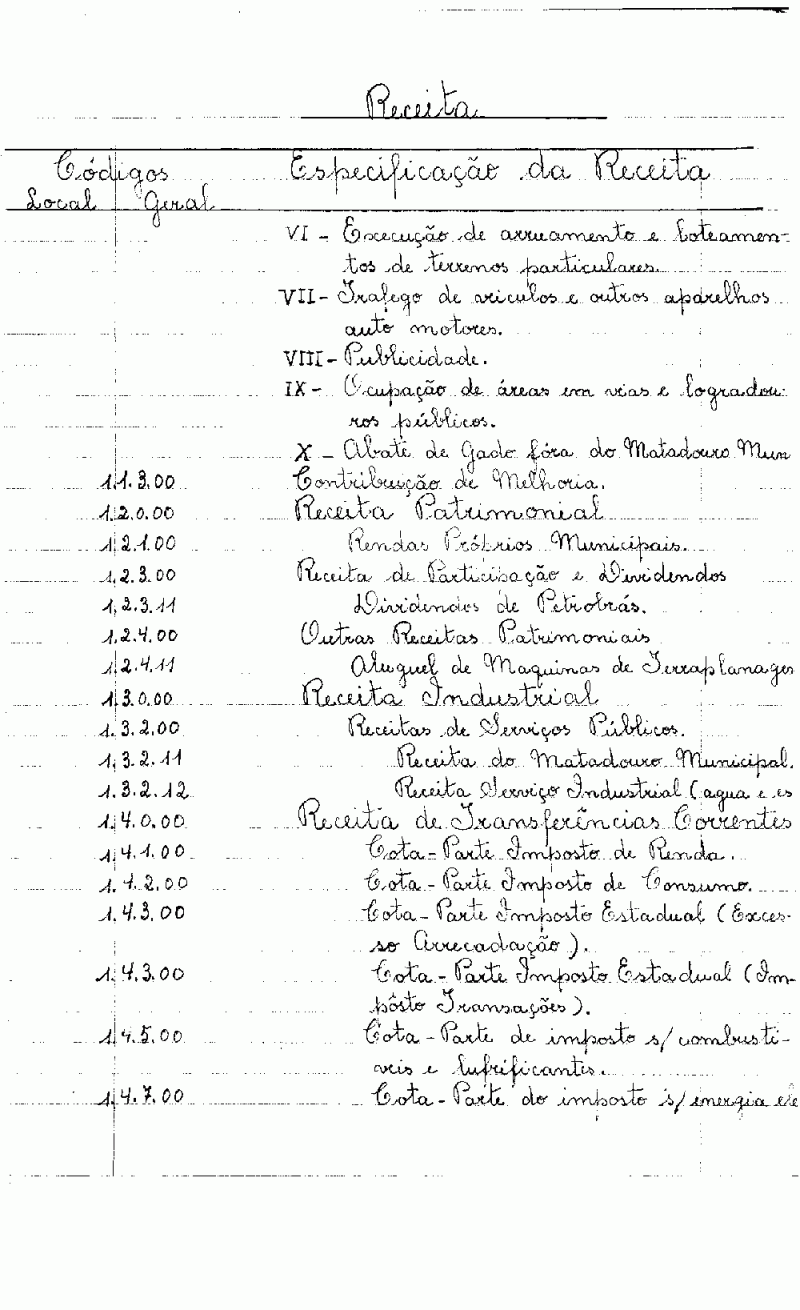 Receita
Códigos Especificação da Receita
Local Geral
VI - Execução de arruamento e loteamen-
tos de terrenos particulares.
VII - Trafego de veiculos e outros aparelhos
auto motores.
VIII - Publicidade.
IX - Ocupação de áreas em vias e logradou-
ros públicos.
X - Abate de Gado fóra do Matadouro Mun
1.1.3.00 Contribuição de Melhoria.
1.2.0.00 Receita Patrimonial
1.2.1.00 Rendas Próprios Municipais.
1.2.3.00 Receita de Participação e Dividendos
1.2.3.11 Dividendos de Petrobrás.
1.2.4.00 Outras Receitas Patrimoniais
1.2.4.11 Aluguel de Maquinas de Terraplanagem
1.3.0.00 Receita Industrial
1.3.2.00 Receitas de Serviços Públicos.
1.3.2.11 Receita do Matadouro Municipal.
1.3.2.12 Receita Serviço Industrial (agua e es
1.4.0.00 Receita de Transferências Correntes
1.4.1.00 Cota-Parte Imposto de Renda.
1.4.2.00 Cota-Parte Imposto de Consumo.
1.4.3.00 Cota-Parte Imposto Estadual (Exces-
so Arrecadação).
1.4.3.00 Cota-Parte Imposto Estadual (Im-
pôsto Transações).
1.4.5.00 Cota-Parte de imposto s/combusti-
veis e lufrificantes.
1.4.7.00 Cota-Parte do imposto s/energia ele